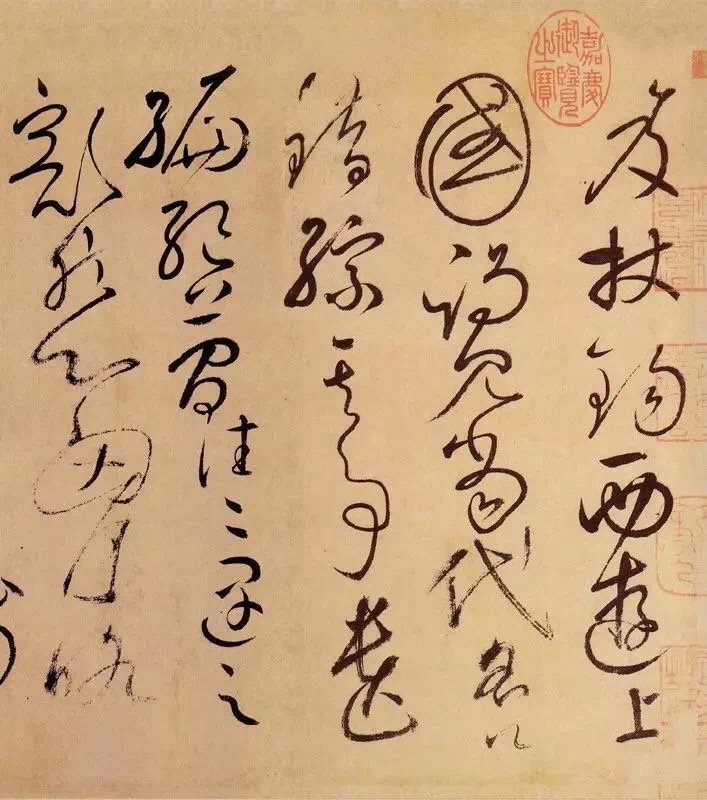 笈杖錫西遊上
國謁見當代名公
錯綜其事遺
編絕簡往〻遇之
豁然心胸略
嘉慶御覽之寶